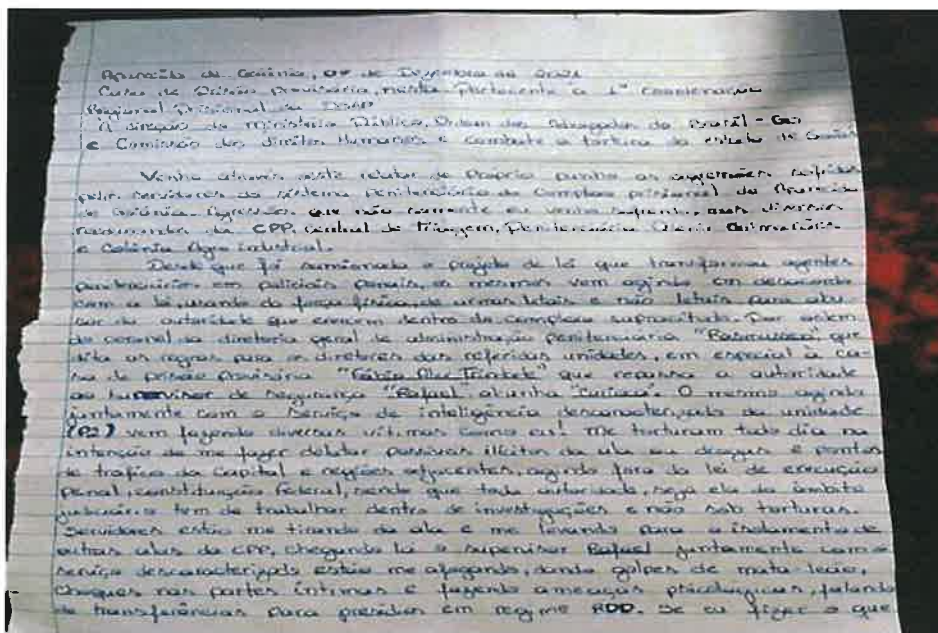 Aparecida de Goiânia, de Dezembro de 2021
Casa de Prisão Provisória, nesta pertecente a 1ª Coordenação
Regional Prisional da DGAP
A direção do ministério Público, Ordem dos Advogados do Brasil - Goi
e Comissão dos direitos Humanos e combate a tortura do estado de Goiás
Venho através deste relatar de Próprio punho as agressões sofridas
pelos servidores do sistema penitenciário do Complexo prisional de Aparecida
de Goiânia. Agressões que não somente eu venho sofrendo, mas diversos
reeducandos da CPP, central de triagem, Penitenciária Odenir Guimarães
e Colônia Agro industrial.
Desde que foi sancionado o projeto de lei que transformou agentes
penitenciários em policiais penais, os mesmos vem agindo em desacordo
com a lei, usando da força física, de armas letais e não letais para abu
sar da autoridade que exercem dentro do complexo supracitado. Por ordem
do coronel da diretoria geral de administração penitenciária que
dita as regras para os diretores das referidas unidades, em especial a ca-
sa de prisão provisória "Fábio que repassa a autoridade
ao supervisor de segurança "Rafael" alcunha O mesmo agindo
juntamente com o serviço de inteligência descaracterizado da unidade
(P2) vem fazendo diversas vítimas como eu! Me torturam todo dia na
intenção de me fazer delatar possíveis ilícitos da ala ou drogas e pontos
de trafico da Capital e regiões adjacentes, agindo fora da lei de execução
penal, constituição Federal, sendo que toda autoridade, seja ela do âmbito
judiciário tem de trabalhar dentro de investigações e não sob torturas.
Servidores estão me tirando da ala e me levando para o isolamento de
outras alas da CPP, chegando lá o supervisor Rafael juntamente com o
serviço descaracterizado estão me afogando, dando golpes de mata-leão,
Choques nas partes íntimas e fazendo ameaças psicológicas, falando
de transferências para presídios em regime RDD. Se eu fizer o que